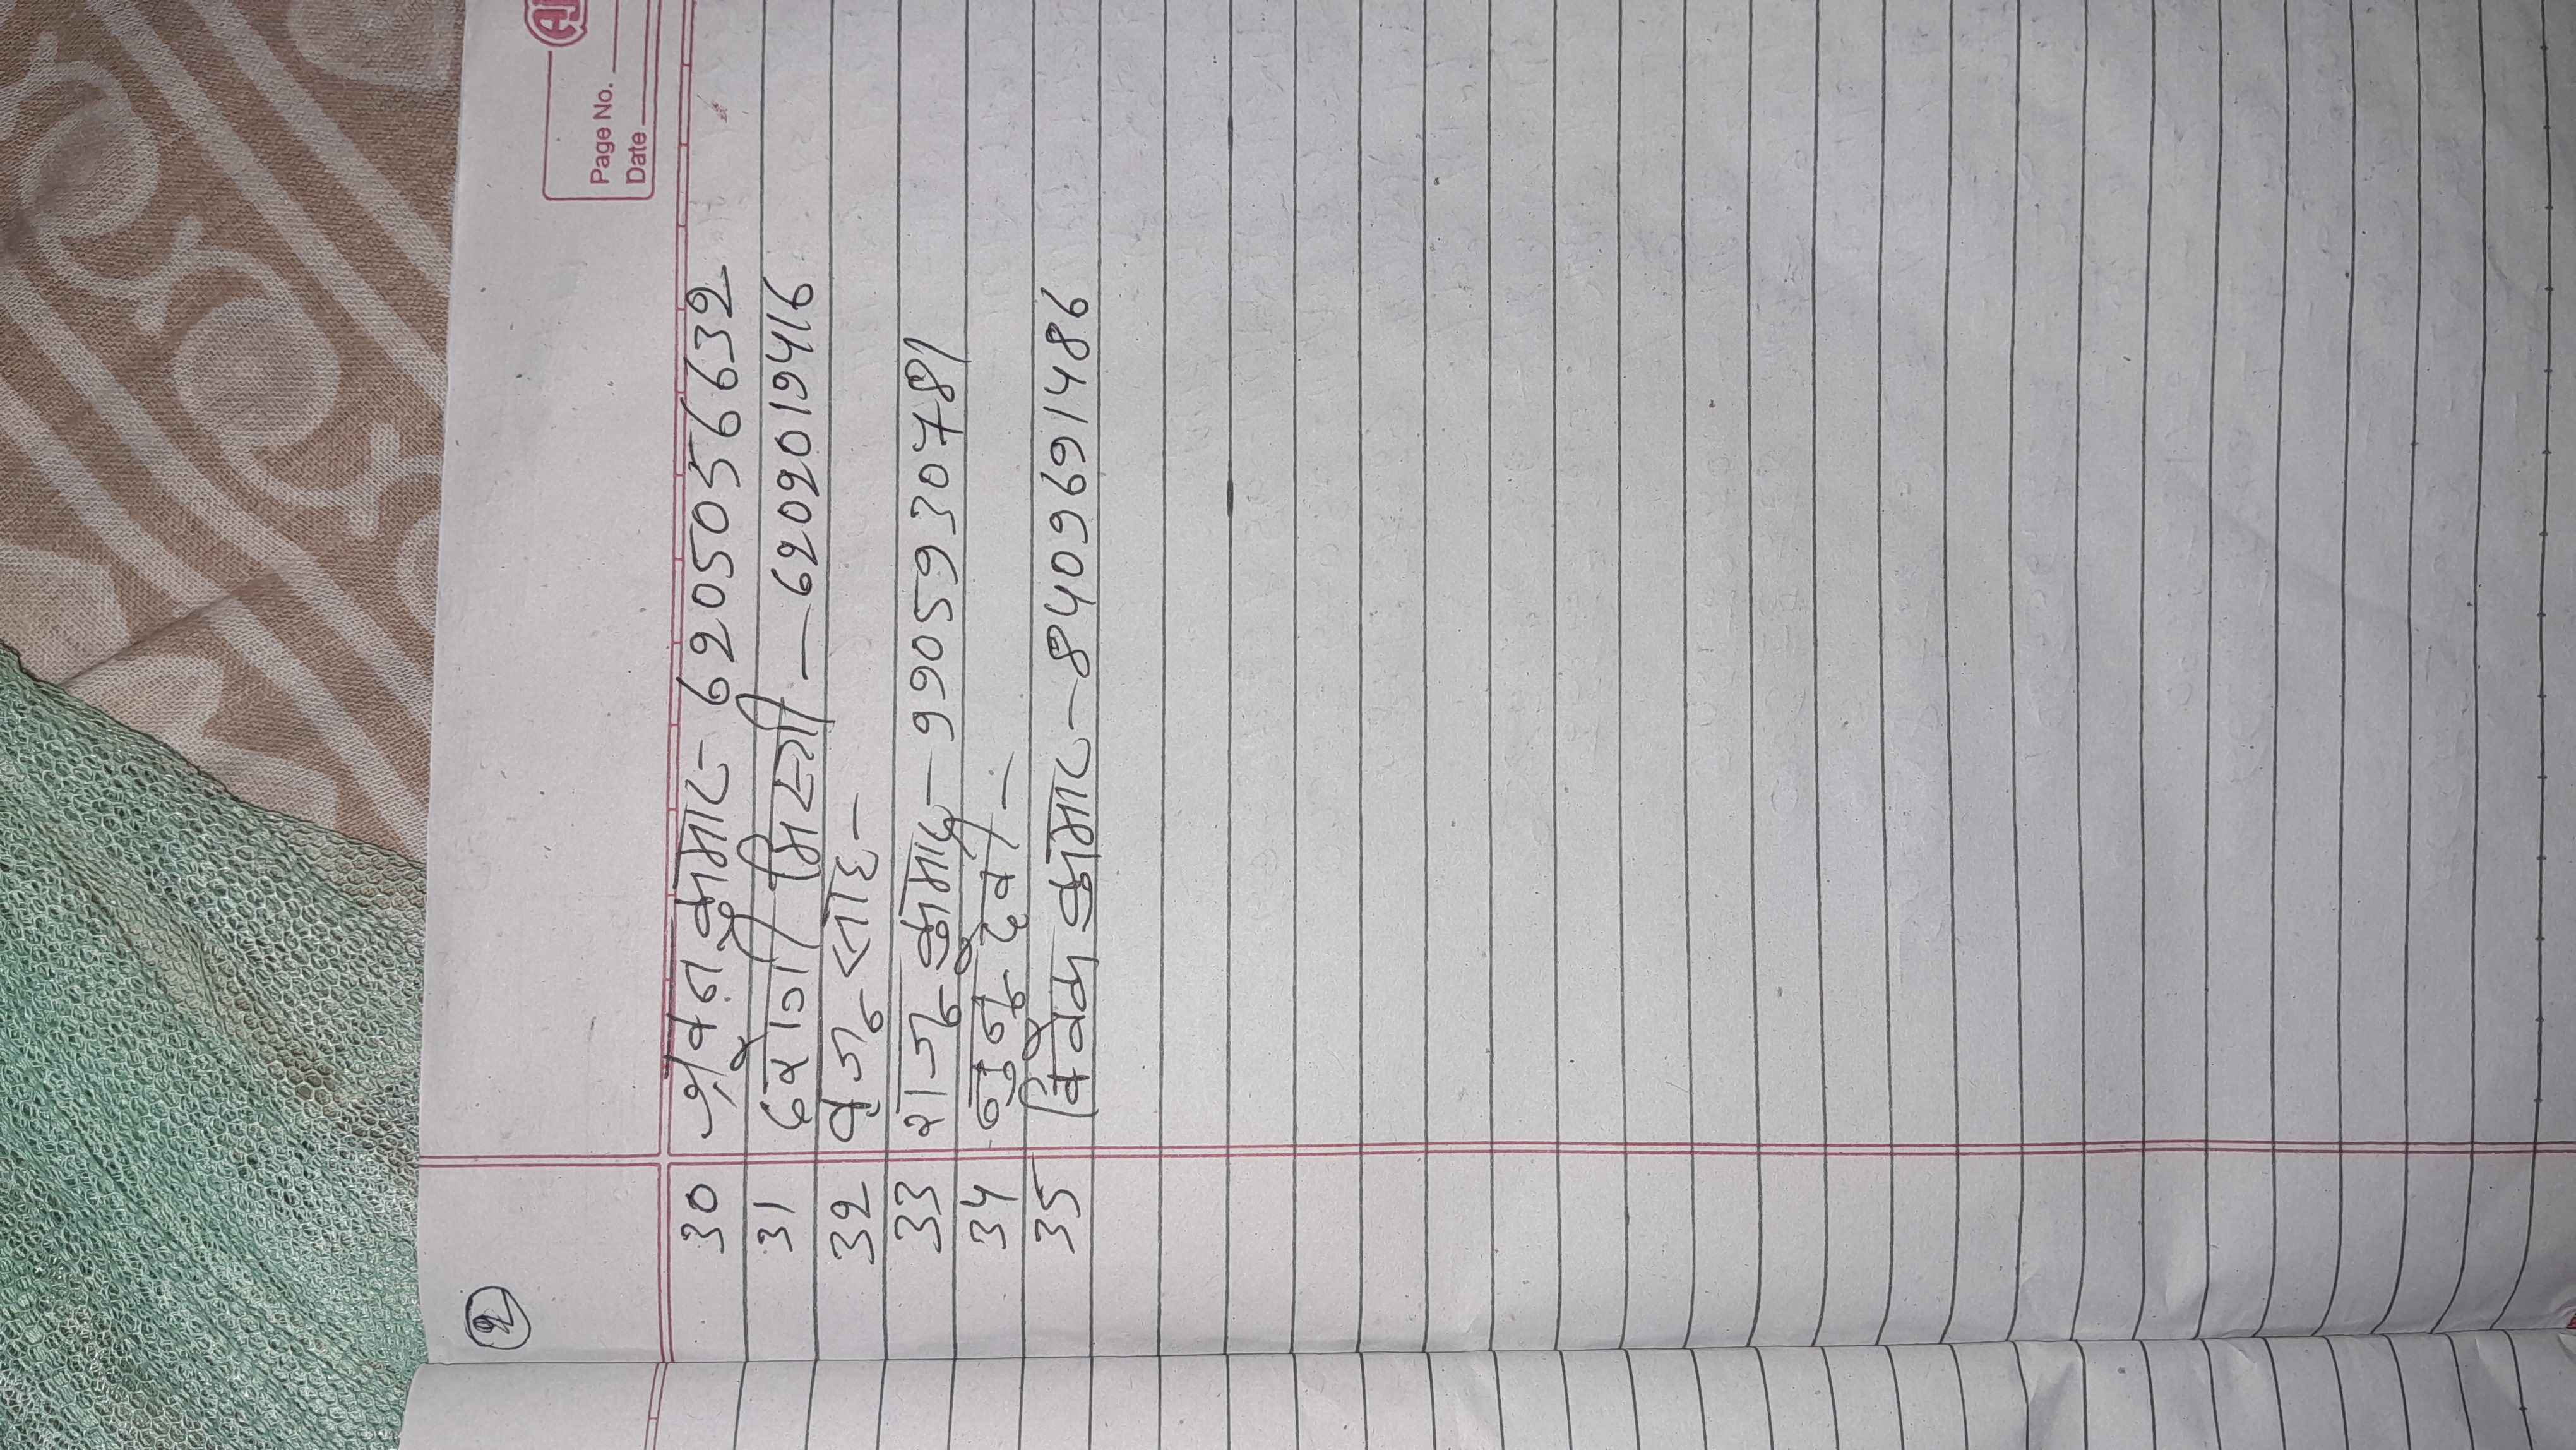 2
Page No.
Date
30 श्रवन कुमार - 6205056632
31 देवानी मिस्त्री - 62092019416
32 बृज साह -
33 राजु कुमार - 9905930781
34 देवी -
35 कुमार - 8409691486